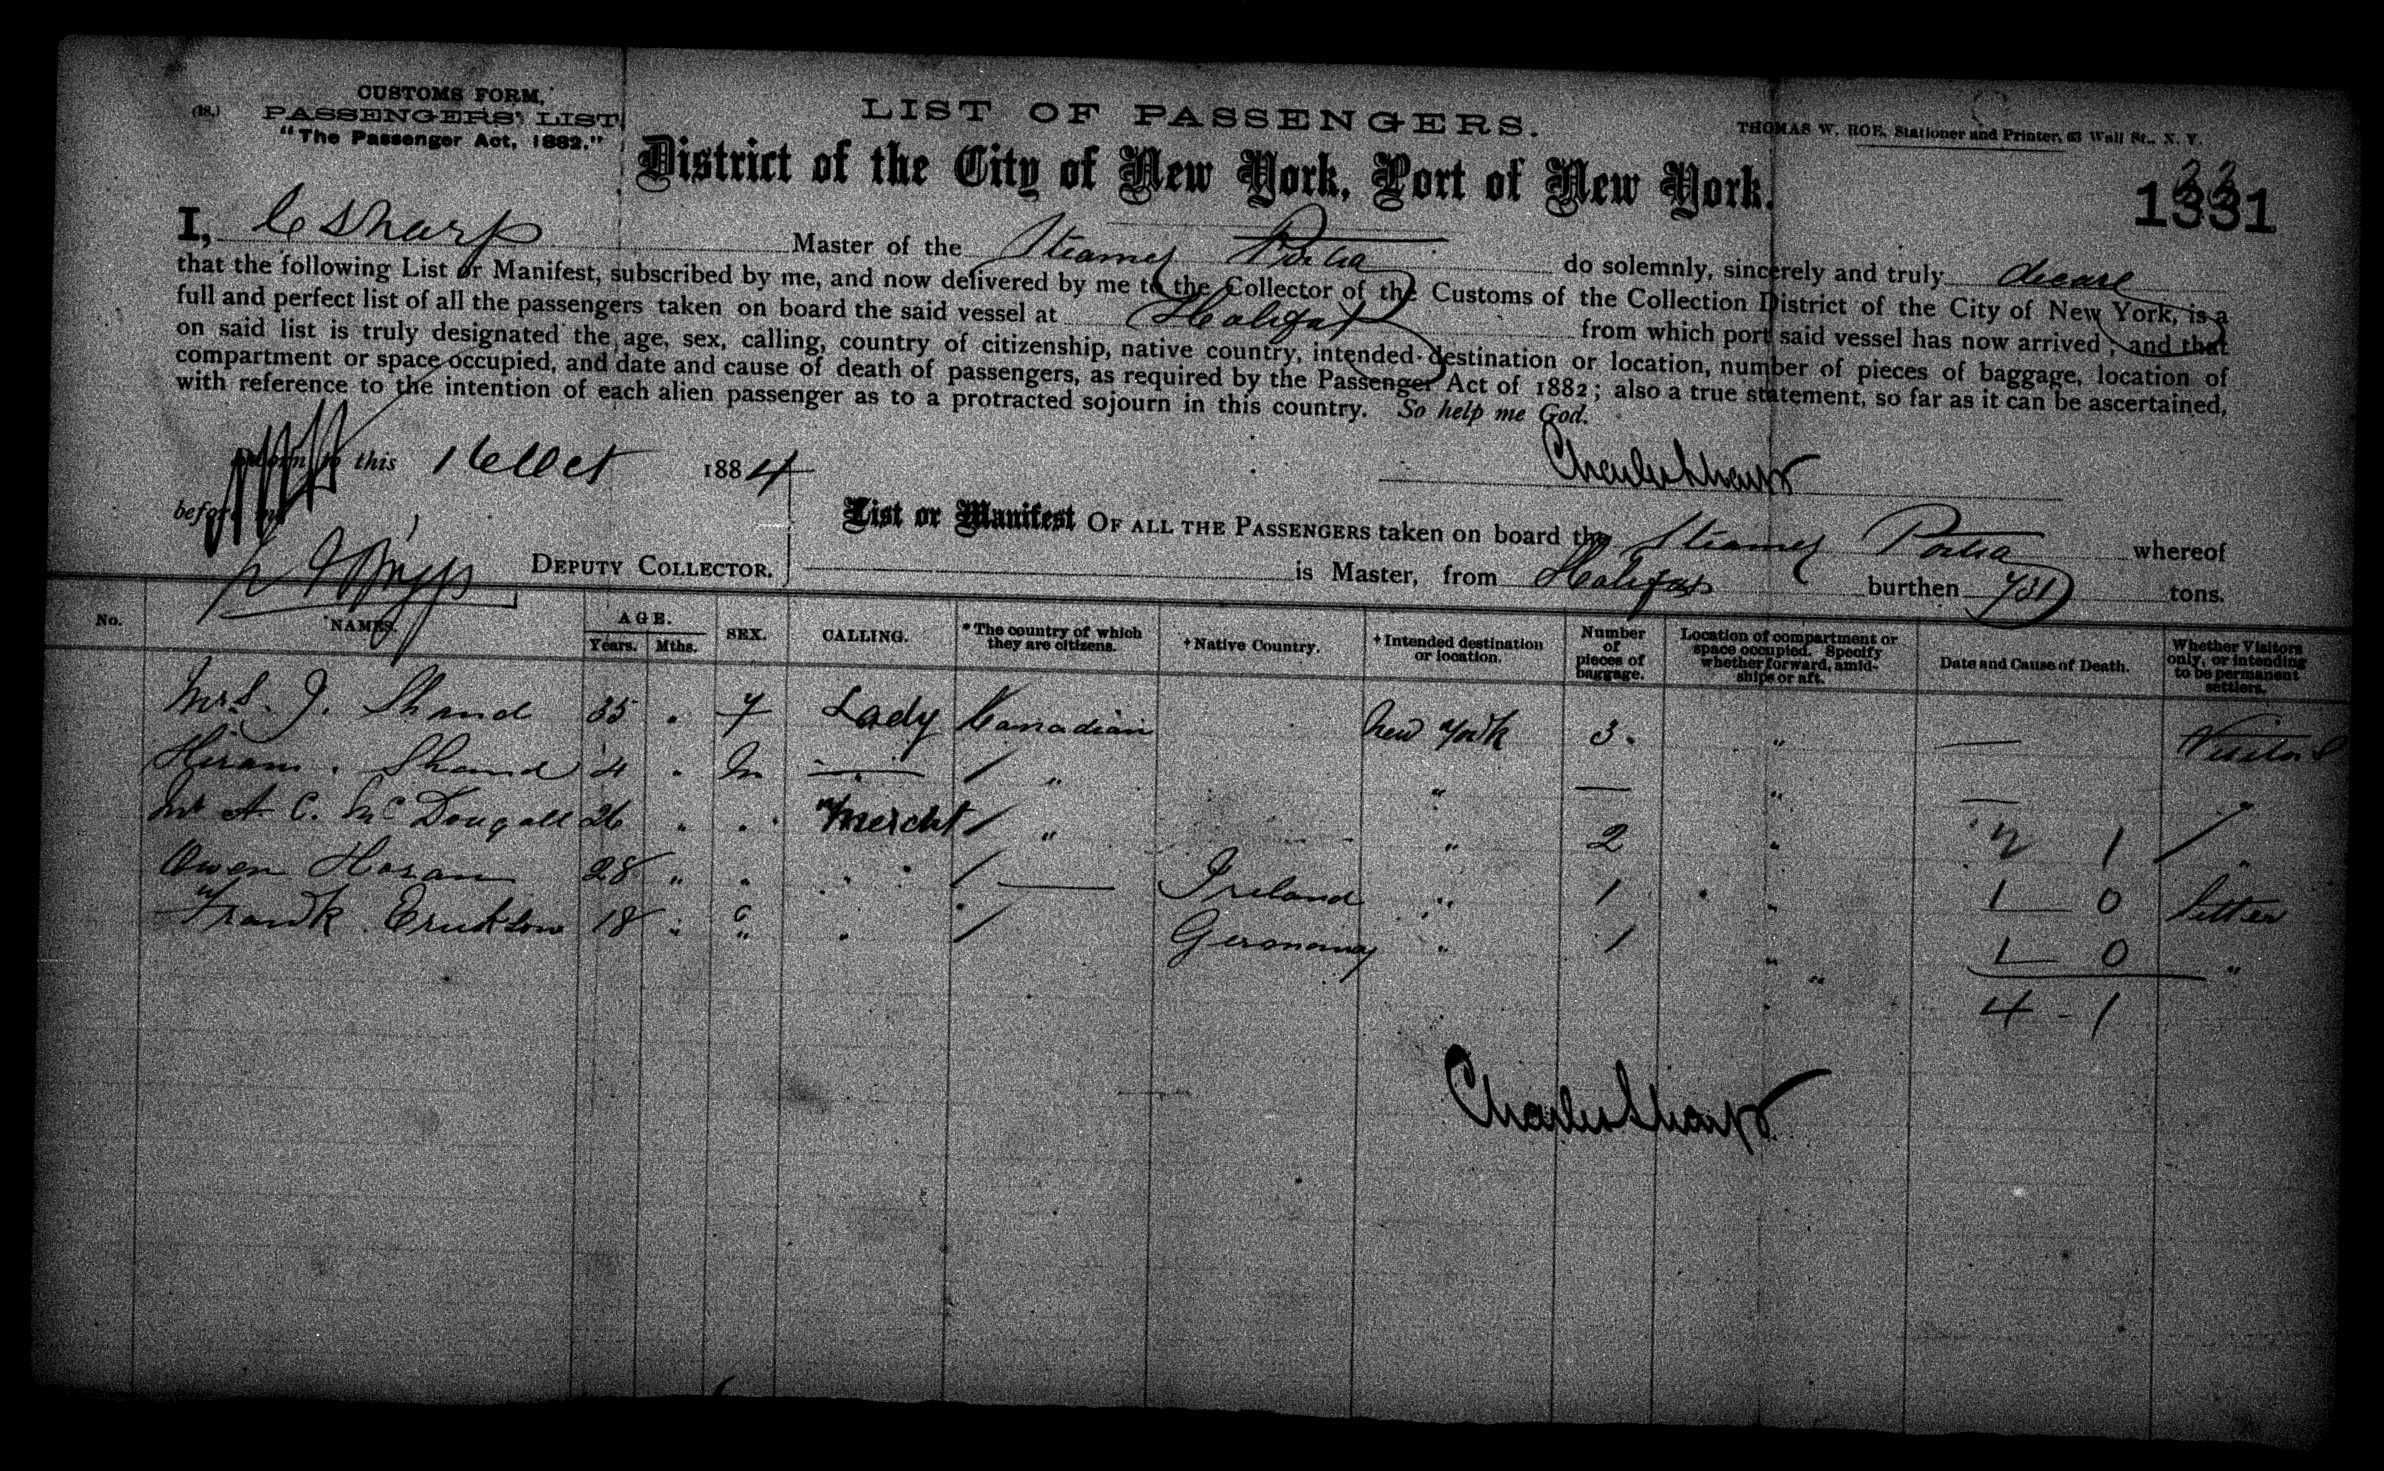 CUSTOMS FORM,
(18.) PASSENGERS' LIST
"The Passenger Act, 1882."
LIST OF PASSENGERS.
THOMAS W. ROE, Stationer and Printer, 63 Wall St., N. Y.
District of the City of New York, Port of New York.
1331
I, C Sharp Master of the Steamer Portia do solemnly, sincerely and truly
that the following List or Manifest, subscribed by me, and now delivered by me to the Collector of the Customs of the Collection District of the City of New York, is a
full and perfect list of all the passengers taken on board the said vessel at Halifax from which port said vessel has now arrived; and that
on said list is truly designated the age, sex, calling, country of citizenship, native country, intended destination or location, number of pieces of baggage, location of
compartment or space occupied, and date and cause of death of passengers, as required by the Passenger Act of 1882; also a true statement, so far as it can be ascertained,
with reference to the intention of each alien passenger as to a protracted sojourn in this country. So help me God.
Sworn to this 16 Oct 1884
Charles Sharp
before me
DEPUTY COLLECTOR.
List or Manifest OF ALL THE PASSENGERS taken on board the Steamer Portia whereof
is Master, from Halifax burthen 731 tons.
No. NAMES. AGE. Years. Mths. SEX. CALLING. *The country of which they are citizens. †Native Country. †Intended destination or location. Number of pieces of baggage. Location of compartment or space occupied. Specify whether forward, amidships or aft. Date and Cause of Death. Whether Visitors only, or intending to be permanent settlers.
Mrs. J. Shand 35 " f Lady Canadian New York 3 " — Visitors
Hiram Shand 4 " m — / " " — " — "
Mr A C. McDougall 26 " " Mercht / " " 2 " 2 1 / "
Owen Horan 28 " " " / — Ireland " 1 " 1 0
Frank Erickson 18 " " " / Germany " 1 " 1 0 "
4 - 1
Charles Sharp